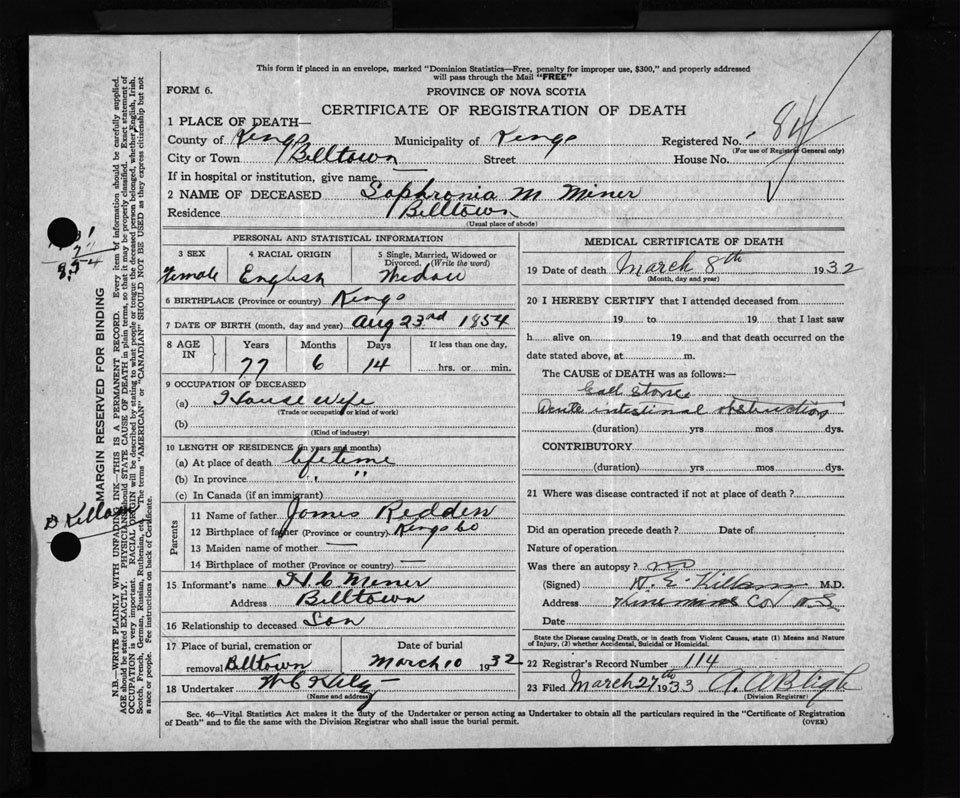 This form if placed in an envelope, marked "Dominion Statistics—Free, penalty for improper use, $300," and properly addressed
will pass through the Mail "FREE"
FORM 6.
PROVINCE OF NOVA SCOTIA
CERTIFICATE OF REGISTRATION OF DEATH
1 PLACE OF DEATH—
County of Kings Municipality of Kings Registered No. 84
(For use of Registrar General only)
City or Town Billtown Street House No.
If in hospital or institution, give name
2 NAME OF DECEASED Sophronia M Miner
Residence Billtown
(Usual place of abode)
PERSONAL AND STATISTICAL INFORMATION
3 SEX 4 RACIAL ORIGIN 5 Single, Married, Widowed or
Divorced. (Write the word)
Female English Widow
6 BIRTHPLACE (Province or country) Kings
7 DATE OF BIRTH (month, day and year) Aug 23rd 1854
8 AGE IN Years Months Days If less than one day,
77 6 14 hrs. or min.
9 OCCUPATION OF DECEASED
(a) House wife
(Trade or occupation or kind of work)
(b)
(Kind of industry)
10 LENGTH OF RESIDENCE (in years and months)
(a) At place of death lifetime
(b) In province " "
(c) In Canada (if an immigrant)
Parents
11 Name of father James Redden
12 Birthplace of father (Province or country) Kings Co
13 Maiden name of mother —
14 Birthplace of mother (Province or country) —
15 Informant's name H. C. Miner
Address Billtown
16 Relationship to deceased Son
17 Place of burial, cremation or Date of burial
removal Billtown March 10 1932
18 Undertaker
(Name and address)
MEDICAL CERTIFICATE OF DEATH
19 Date of death March 8th 1932
(Month, day and year)
20 I HEREBY CERTIFY that I attended deceased from
19 to 19 that I last saw
h alive on 19 and that death occurred on the
date stated above, at m.
The CAUSE of DEATH was as follows:—
Gall Stones
Acute intestinal obstruction
(duration) yrs mos dys.
CONTRIBUTORY
(duration) yrs mos dys.
21 Where was disease contracted if not at place of death?
Did an operation precede death? Date of
Nature of operation
Was there an autopsy? no
(Signed) Killam M.D.
Address Co N.S.
Date
State the Disease causing Death, or in death from Violent Causes, state (1) Means and Nature
of Injury, (2) whether Accidental, Suicidal or Homicidal.
22 Registrar's Record Number 114
23 Filed March 27th 1933 A. A Bligh
(Division Registrar)
Sec. 46—Vital Statistics Act makes it the duty of the Undertaker or person acting as Undertaker to obtain all the particulars required in the "Certificate of Registration
of Death" and to file the same with the Division Registrar who shall issue the burial permit. (OVER)
MARGIN RESERVED FOR BINDING
N.B.—WRITE PLAINLY WITH UNFADING INK—THIS IS A PERMANENT RECORD. Every item of information should be carefully supplied.
AGE should be stated EXACTLY. PHYSICIANS should STATE CAUSE OF DEATH in plain terms, so that it may be properly classified. Exact statement of
OCCUPATION is very important. RACIAL ORIGIN will be described by stating to what people or tongue the deceased person belonged, whether English, Irish,
Scotch, French, German, Russian, Ruthenian, etc. The terms "AMERICAN" or "CANADIAN" SHOULD NOT BE USED as they express citizenship but not
a race or people. See instructions on back of Certificate.